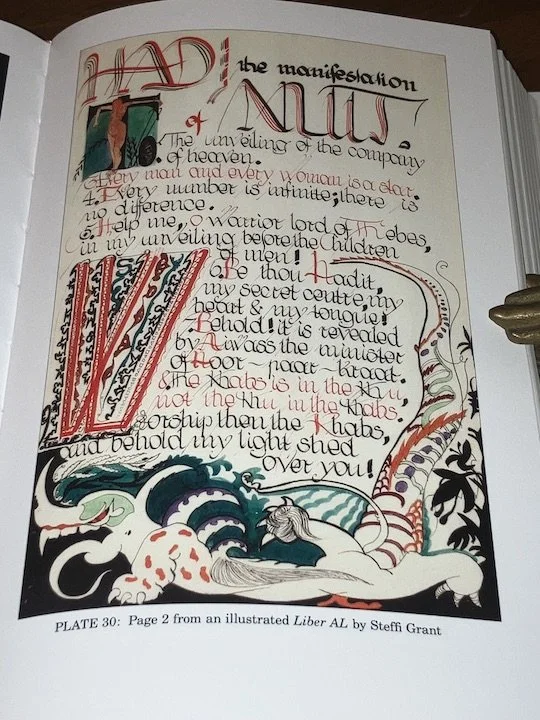 HAD! the manifestation
of NUIT.
The unveiling of the company
of heaven.
Every man and every woman is a star.
4. Every number is infinite; there is
no difference.
5. Help me, O warrior lord of Thebes,
in my unveiling before the Children
of men!
6. Be thou Hadit,
my secret centre, my
heart & my tongue!
Behold! it is revealed
by Aiwass the minister
of Hoor-paar-kraat.
8. The Khabs is in the Khu,
not the Khu in the Khabs.
Worship then the Khabs,
and behold my light shed
over you!
PLATE 30: Page 2 from an illustrated Liber AL by Steffi Grant